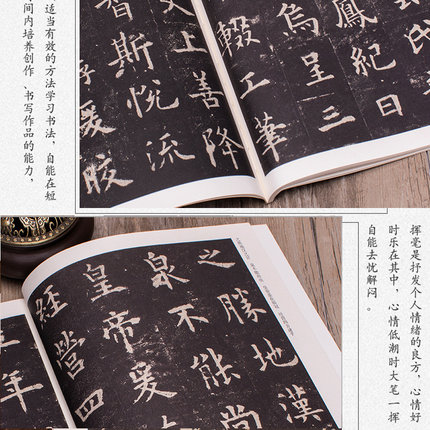 适当有效的方法学习书法，自能在短
间内培养创作、书写作品的能力，
氏
鳳紀日
烏呈三
輟工筆
上善降
斯悦流
子爰
挥毫是抒发个人情绪的良方，心情好
时乐在其中，心情低潮时大笔一挥
自能去忧解闷。
之勝地漢
泉不能
皇帝爰
經營四
年